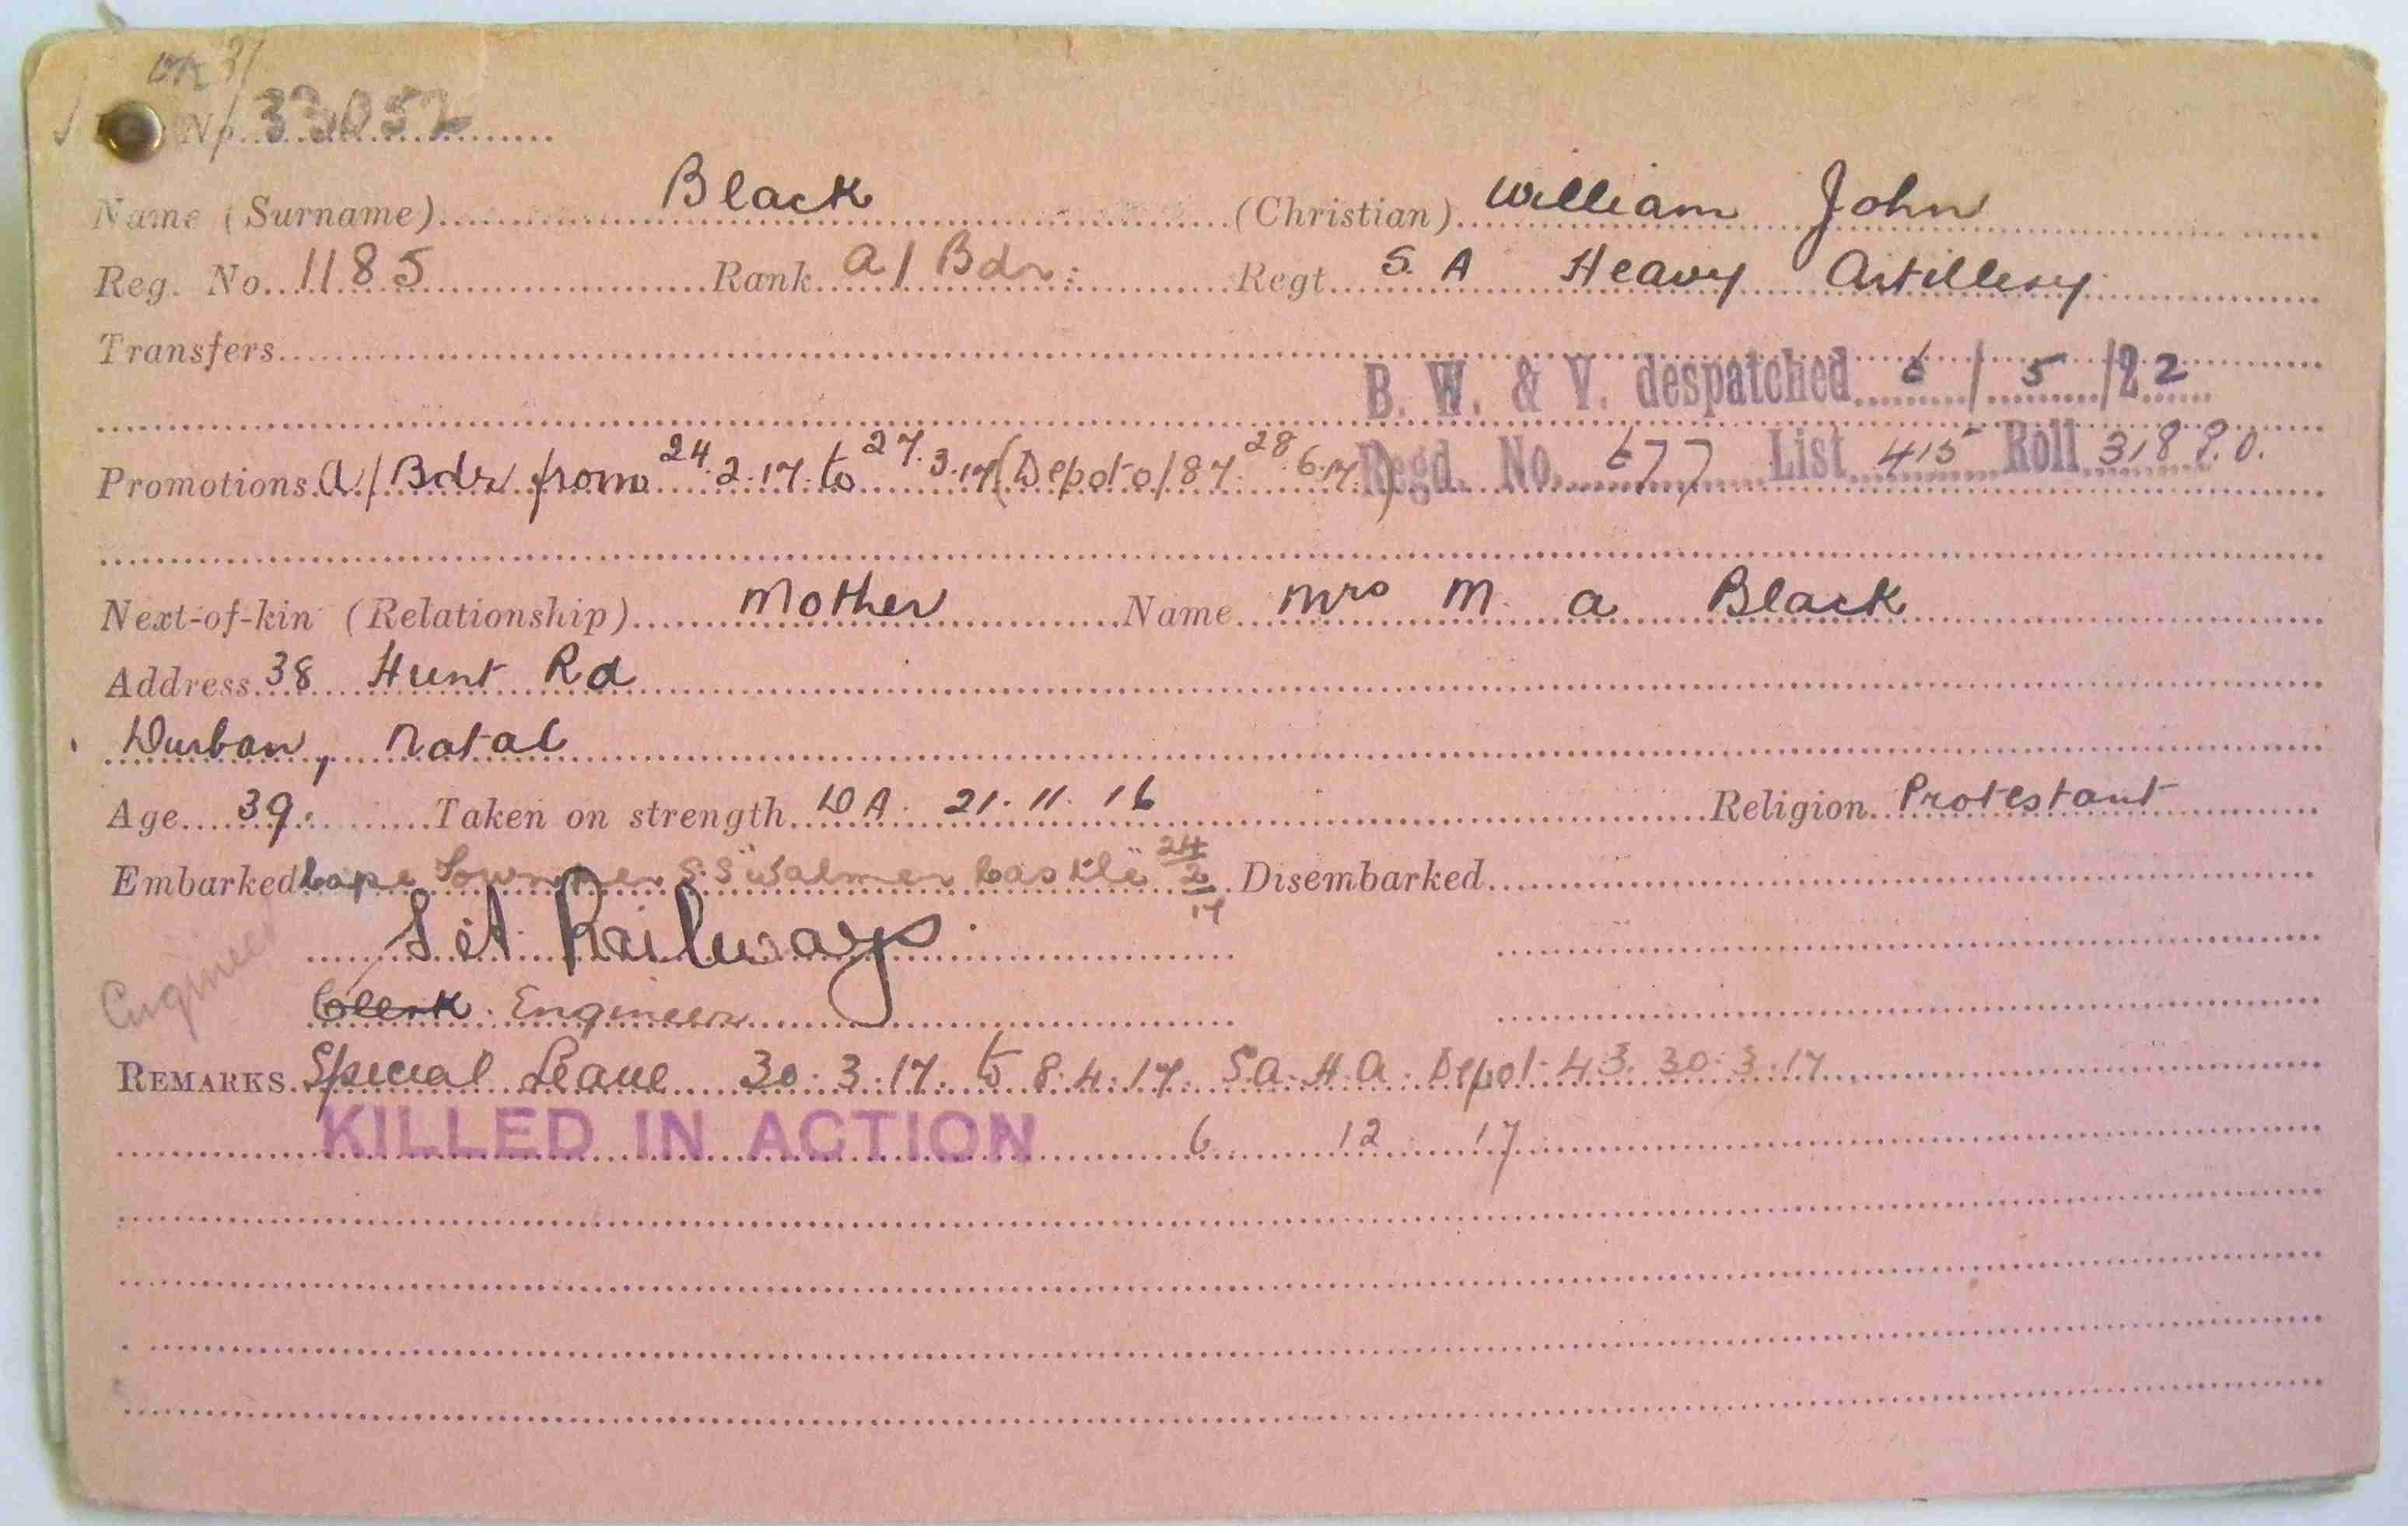 No. 33052
Name (Surname) Black (Christian) William John
Reg. No. 1185 Rank A/Bdr: Regt S. A Heavy Artillery
Transfers
B. W. & V. despatched 6/5/22
Promotions A/Bdr from 24.2.17 to 27.3.17 (Depot o/87. 28.6.17) Regd. No. 677 List 415 Roll 318
Next-of-kin (Relationship) Mother Name Mrs M. A Black
Address 38 Hunt Rd
Durban, Natal
Age 39. Taken on strength DA. 21.11.16 Religion Protestant
Embarked Cape Town per S.S "Walmer Castle" 24/2/17 Disembarked
S.A. Railways
Engineer
Clerk. Engineer
REMARKS Special Leave 30.3.17. to 8.4.17. S.A.H.A. Depot 43. 30.3.17
KILLED IN ACTION 6 12 17